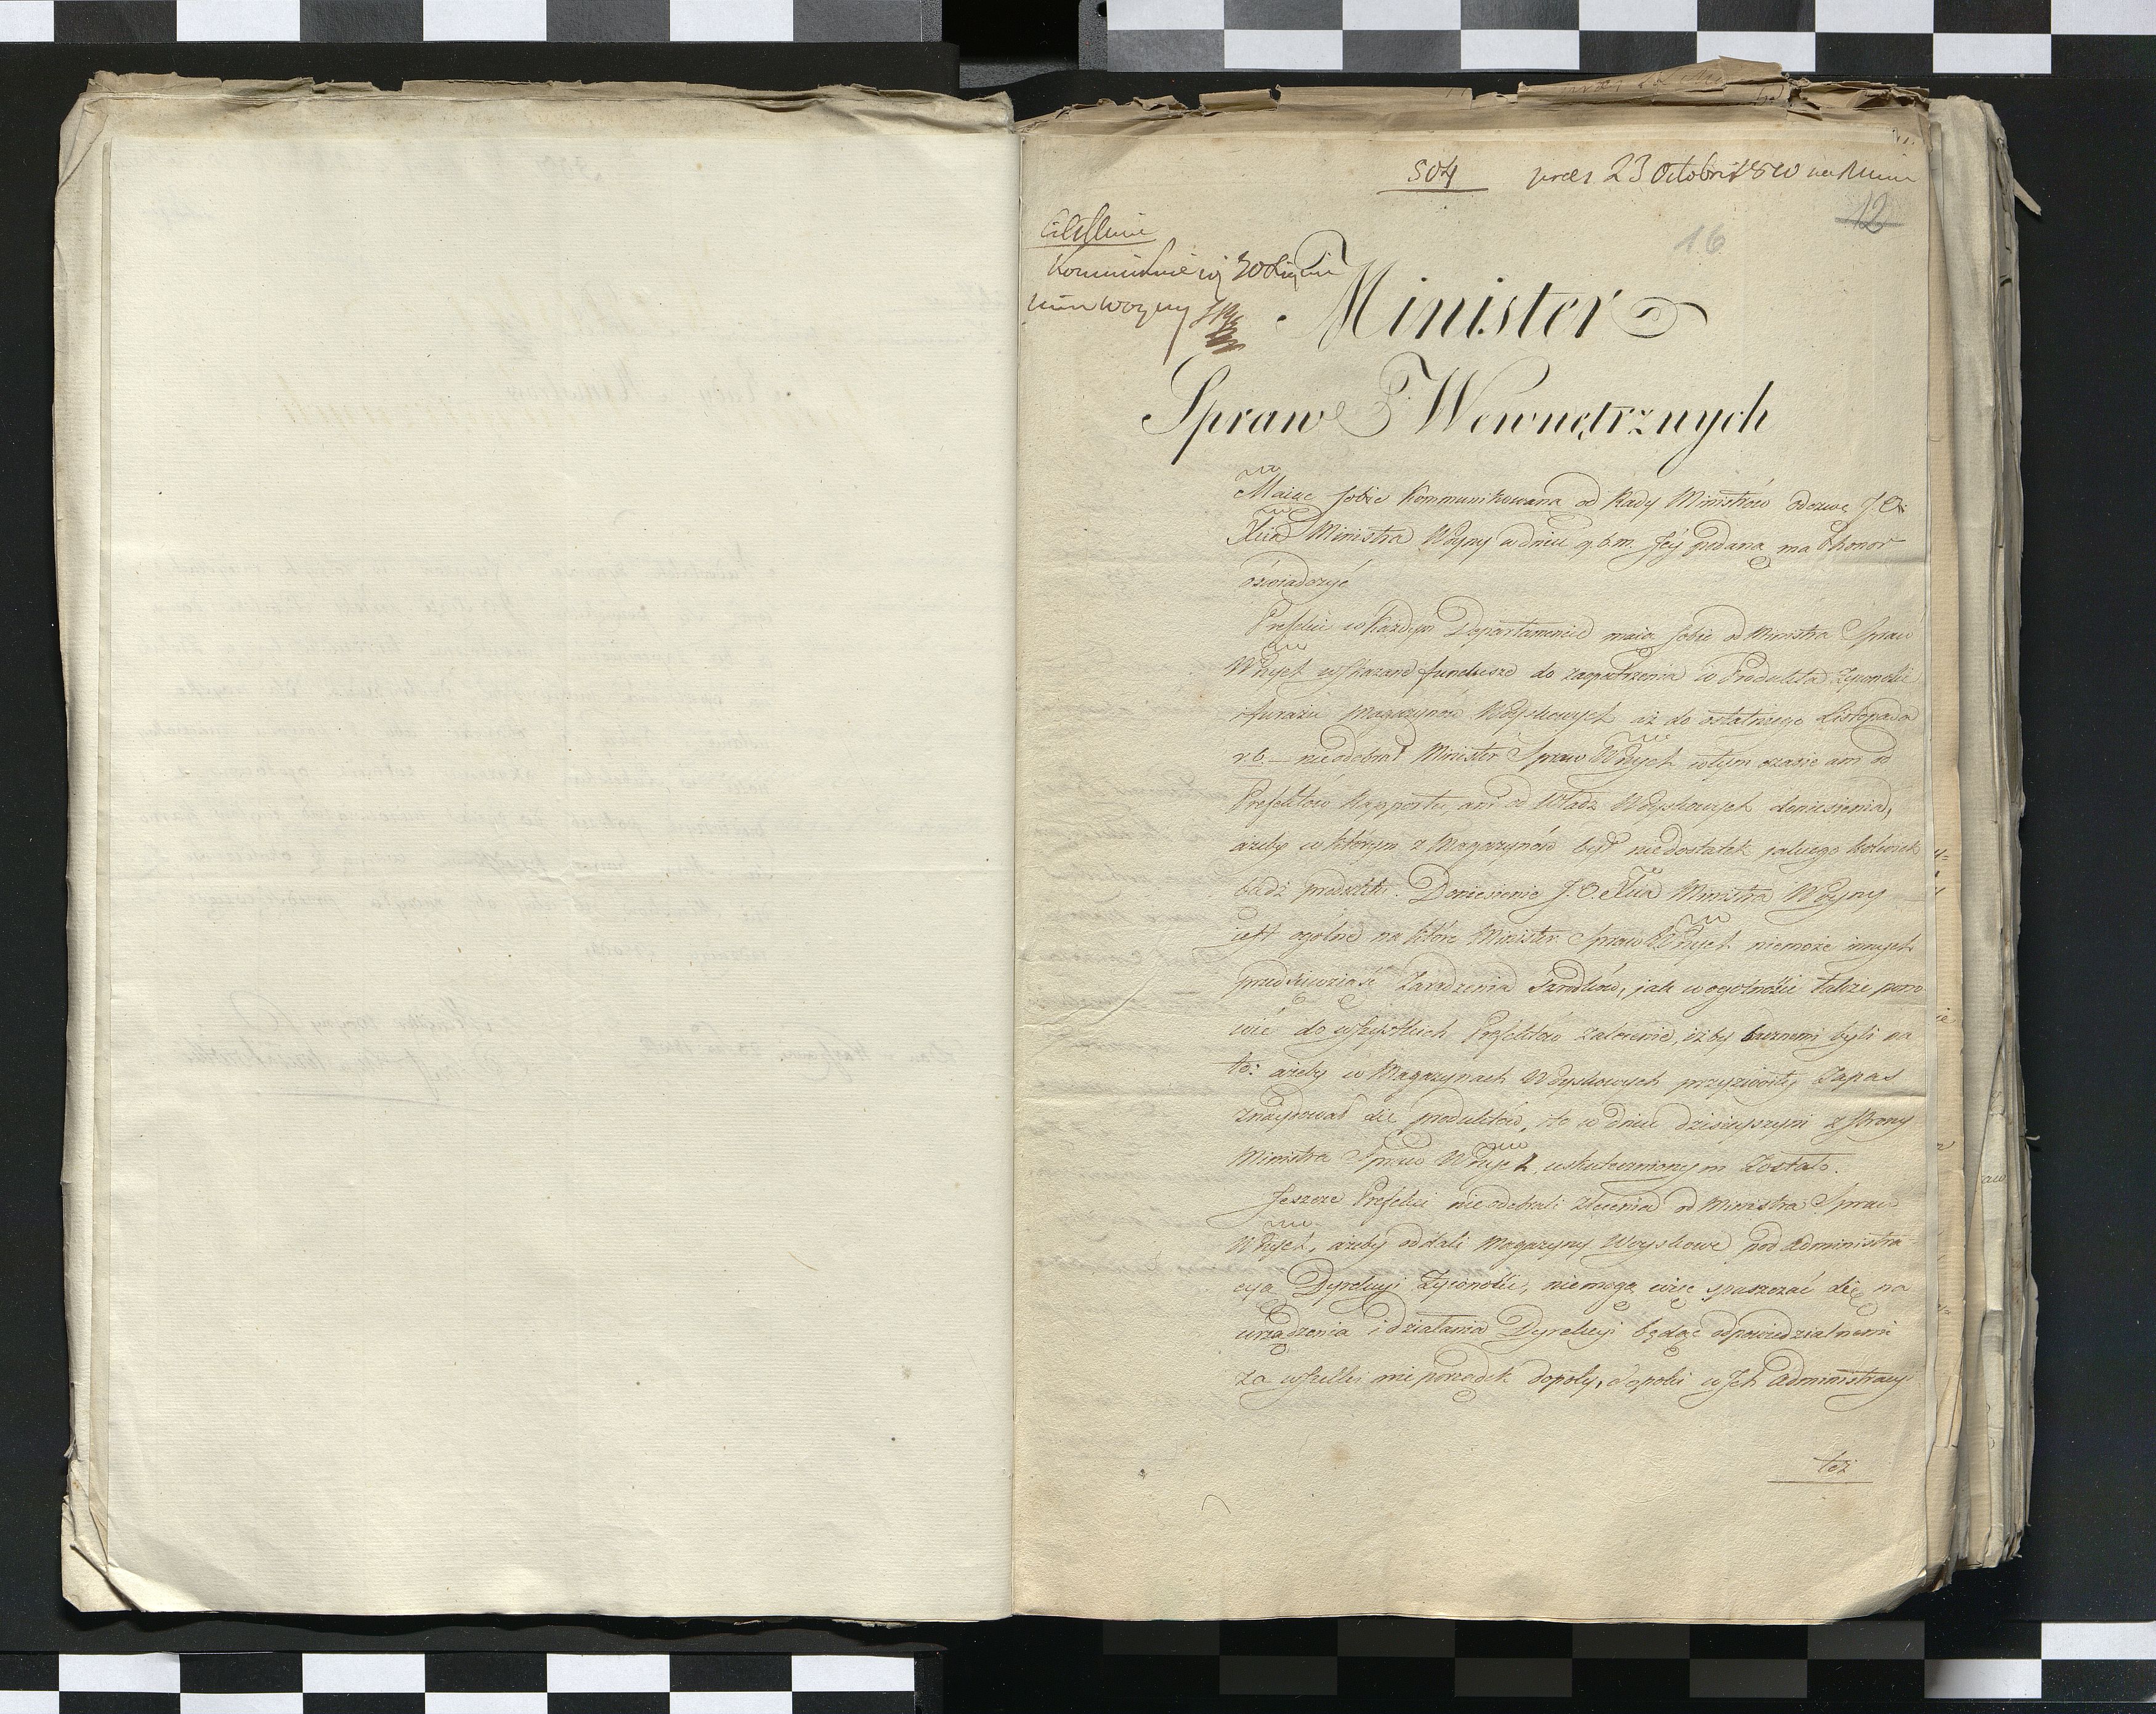 504 23 Octobris 1810
12
16
Minister
Spraw Wewnętrznych
Maiąc sobie kommunikowaną od Rady Ministrów odezwę J. O.
Xcia Ministra Woyny w dniu 9. b. m. Jey podaną ma honor
oświadczyć
Prefekci w każdym Departamencie maią sobie od Ministra Spraw
Wnych wskazane fundusze do zaopatrzenia w Produkta żywności
i furażu Magazynów Woyskowych aż do ostatniego Listopada
r. b. — nieodebrał Minister Spraw Wnych w tym czasie ani od
Prefektów Rapportu, ani od Władz Woyskowych doniesienia,
ażeby w którym z Magazynów był niedostatek jakiego kolwiek
bądź produktu. Doniesienie J. O. Xcia Ministra Woyny
iest ogólne na które Minister Spraw Wnych niemoże innych
przedsięwziąść zaradzenia srzodków, jak w ogólności także pono
wić do wszystkich Prefektów zalecenie, iżby baznemi byli na
to: ażeby w Magazynach Woyskowych przyzwoity zapas
znaydował się produktów, i to w dniu dzisieyszym z strony
Ministra Spraw Wnych uskutecznionym zostało.
Jeszcze Prefekci nieodebrali zlecenia od Ministra Spraw
Wnych, ażeby oddali Magazyny Woyskowe pod Administra
cyą Dyrekcyi Żywności, niemogą więc spuszczać się na
urządzenia i działania Dyrekcyi będąc odpowiedzialnemi
za wszelki nieporządek dopóty, dopóki w Ich Administracyi
też